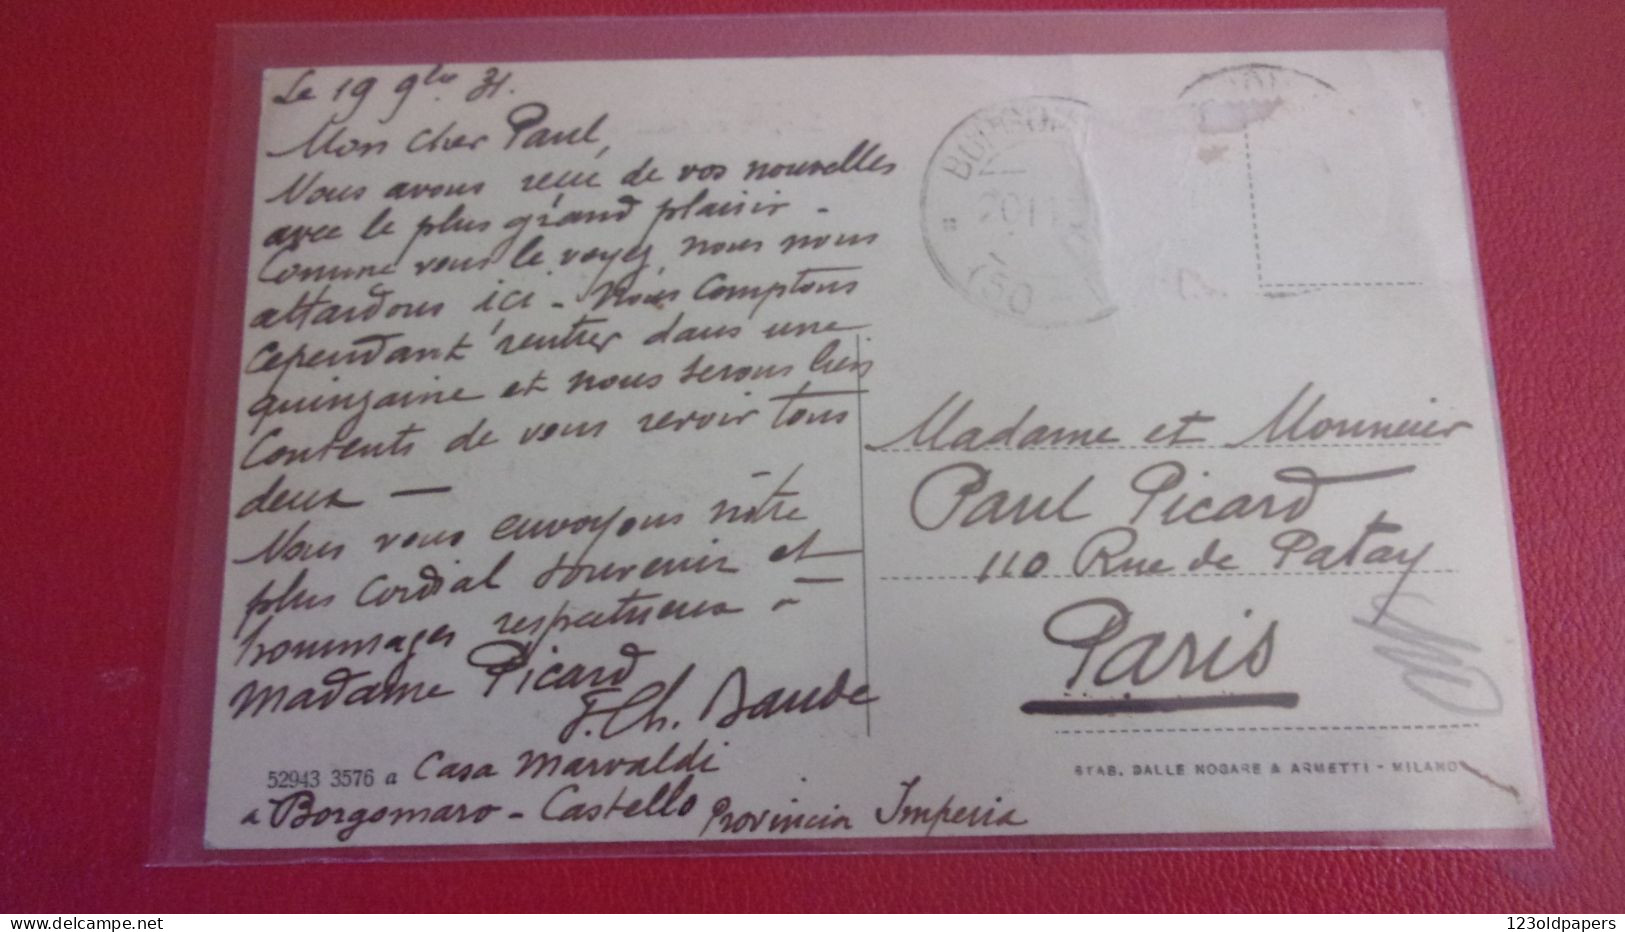 Le 19 9bre 31.
Mon cher Paul,
Nous avons reçu de vos nouvelles
avec le plus grand plaisir -
Comme vous le voyez nous nous
attardons ici - Nous comptons
cependant rentrer dans une
quinzaine et nous serons bien
contents de vous revoir tous
deux —
Nous vous envoyons nôtre
plus cordial souvenir et
hommages respectueux à —
Madame Picard
F. Ch. Baude
52943 3576 a Casa Marvaldi
a Borgomaro - Castello Provincia Imperia
20 11
(50
Madame et Monnsieur
Paul Picard
110 Rue de Patay
Paris
STAB. DALLE NOGARE & ARMETTI - MILANO
123oldpapers